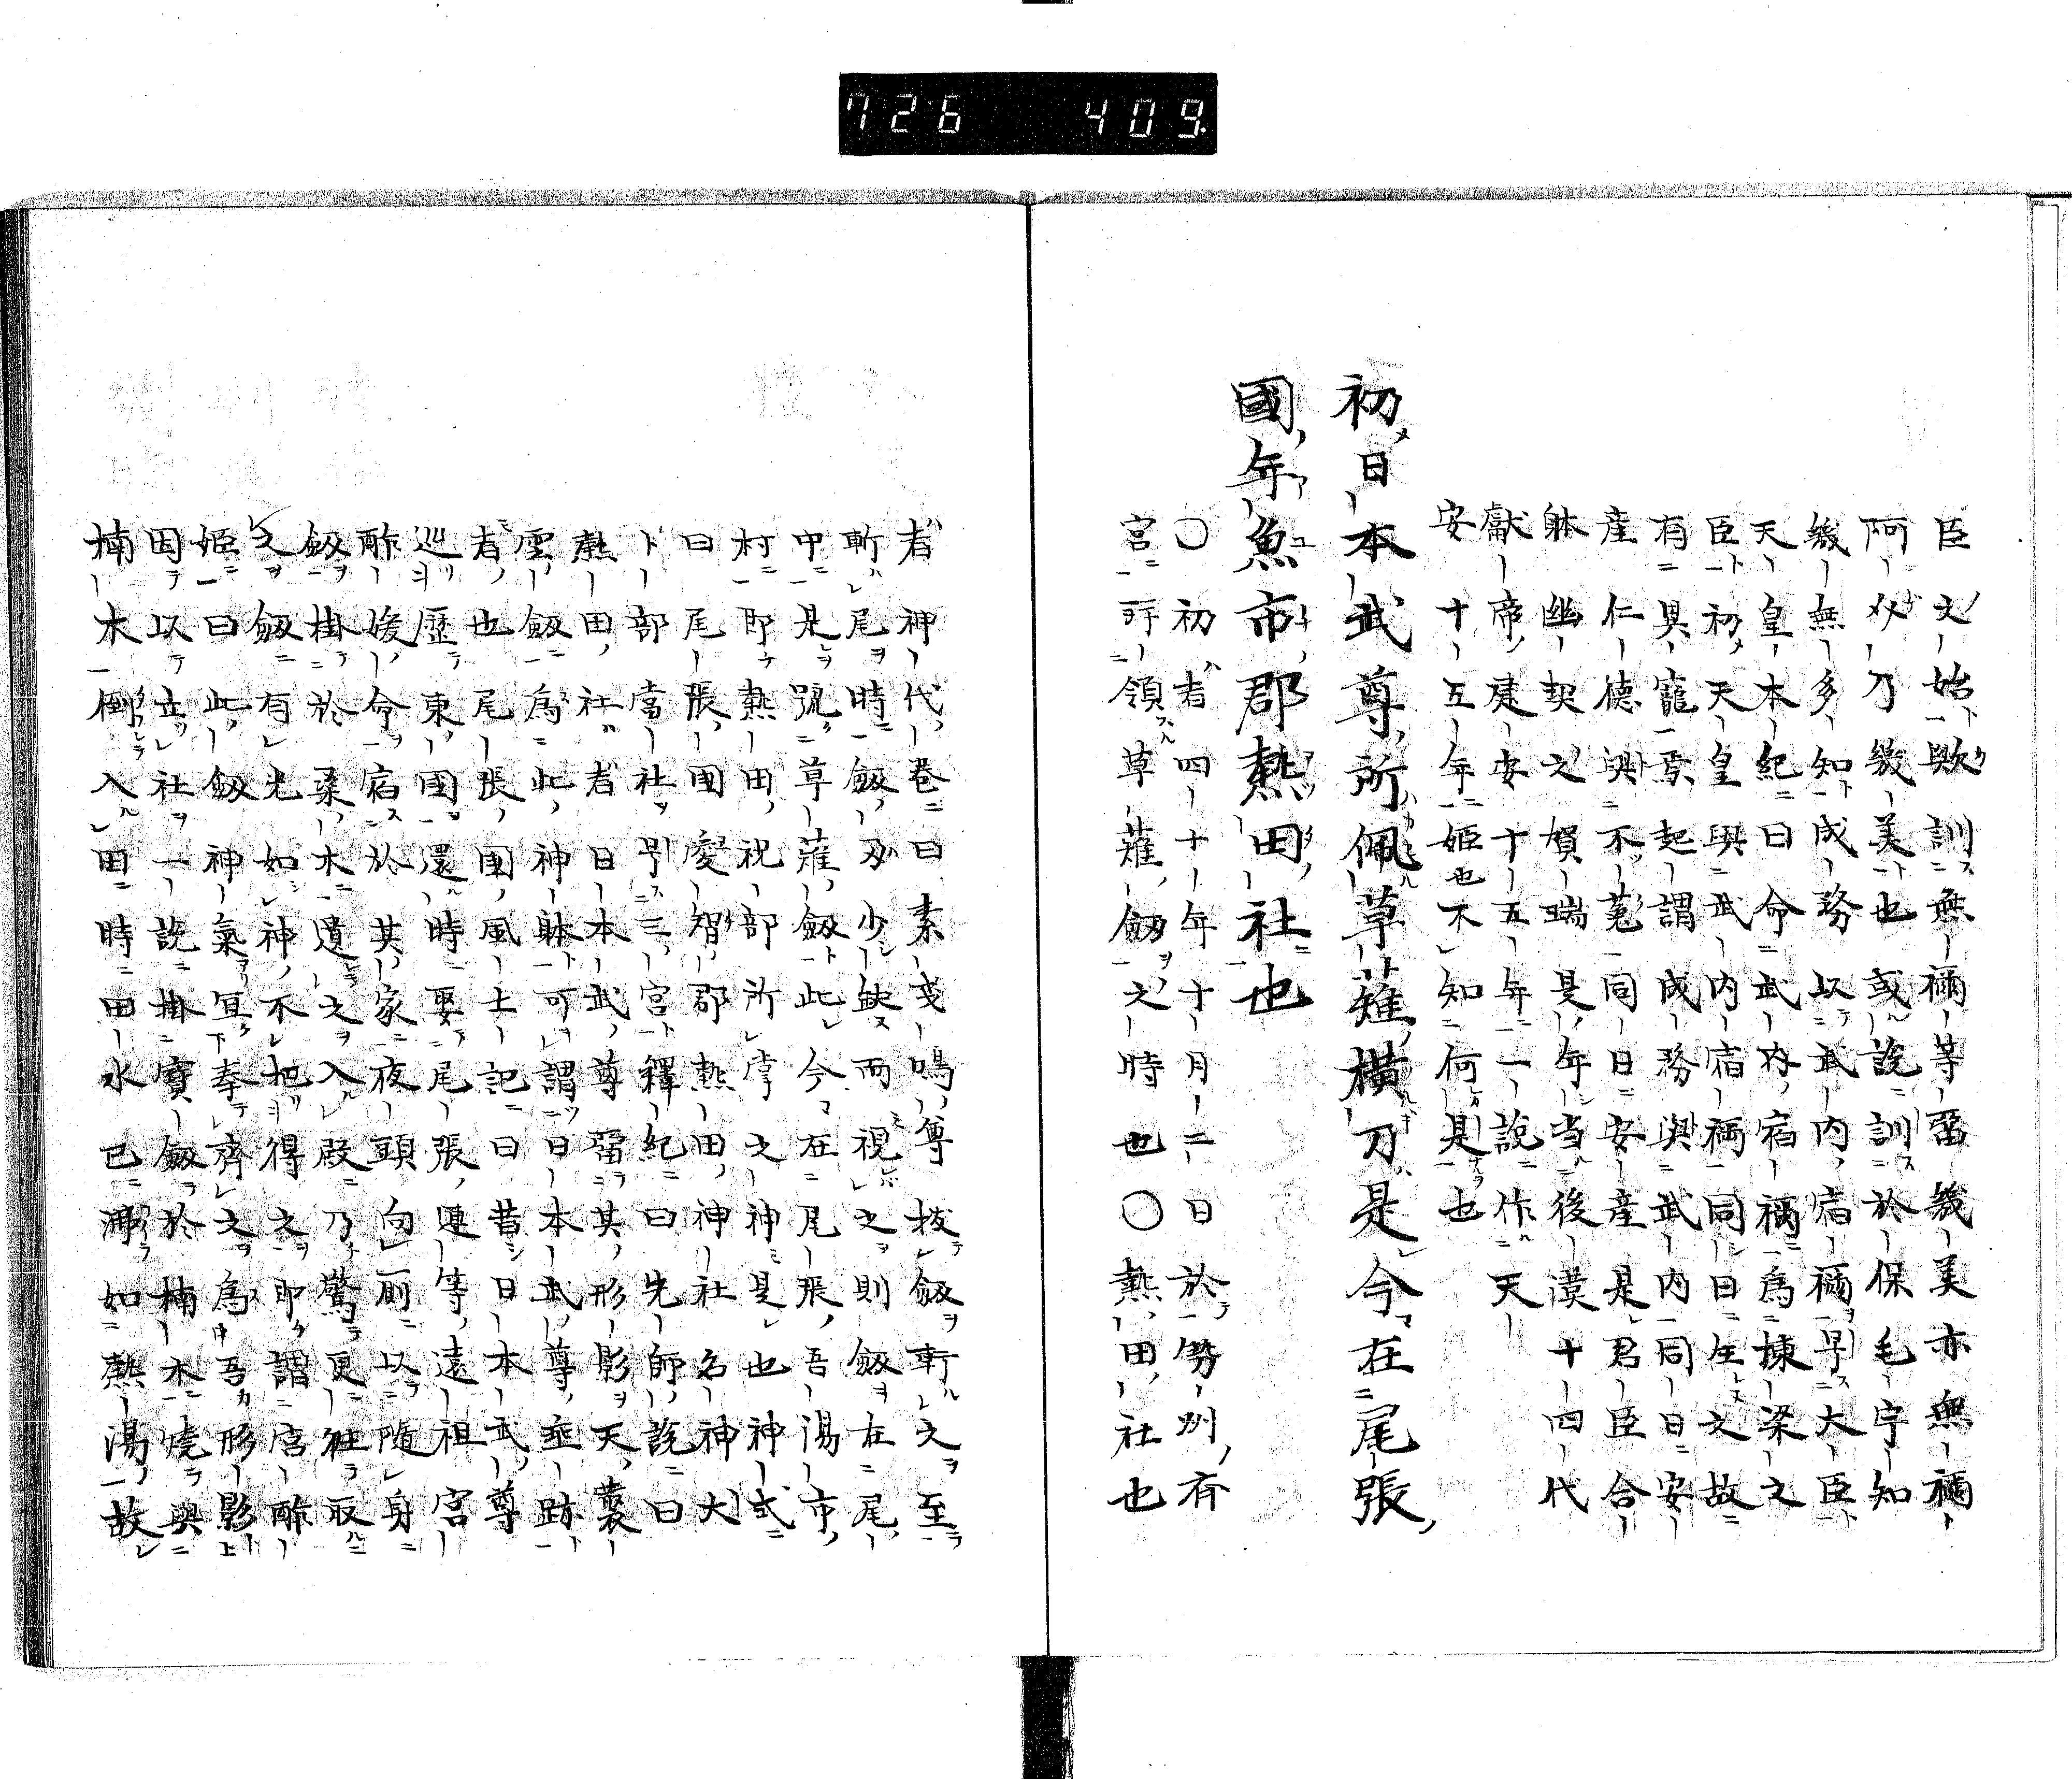 726 409.
臣文始歟訓無禰等畱幾美亦無禰
阿父乃幾美也或說訓於保毛宇知
幾無多知成務以武内宿禰号大臣
天皇本紀曰命武内宿禰為棟梁之
臣初天皇與武内宿禰同日生之故
有異寵焉起謂成務與武内同日安
産仁徳與不菟同日安産是君臣合
躰幽契之賀瑞是年当後漢十四代
獻帝建安十五年一說作天
安十五年姫也不知何是也
初日本武尊所佩草薙横刀是今在尾張
國年魚市郡熱田社也
〇初者四十年十月二日於勢州斉
宮拝領草薙劔之時也〇熱田社也
者神代巻曰素戔嗚尊抜劔斬之至
斬尾時劔刃少缺而視之則劔在尾
中是號草薙劔此今在尾張吾湯市
村即熱田祝部所掌之神是也神式
曰尾張國愛智郡熱田神社名神大
卜部當社号三宮釋紀曰先師說曰
熱田社者日本武尊畱其形影天藂
雲劔為此神躰可謂日本武尊垂跡
者也尾張國風土記曰昔日本武尊
巡歷東國還時娶尾張連等遠祖宮
酢媛命宿於其家夜頭向厠以隨身
劔掛於桑木遺之入殿乃驚更往取
之劔有光如神不把得之即謂宮酢
姫曰此劔神氣宜奉齊之為吾形影
因以立社一說掛寶劔於楠木燒與
楠木倒入田時田水已沸如熱湯故